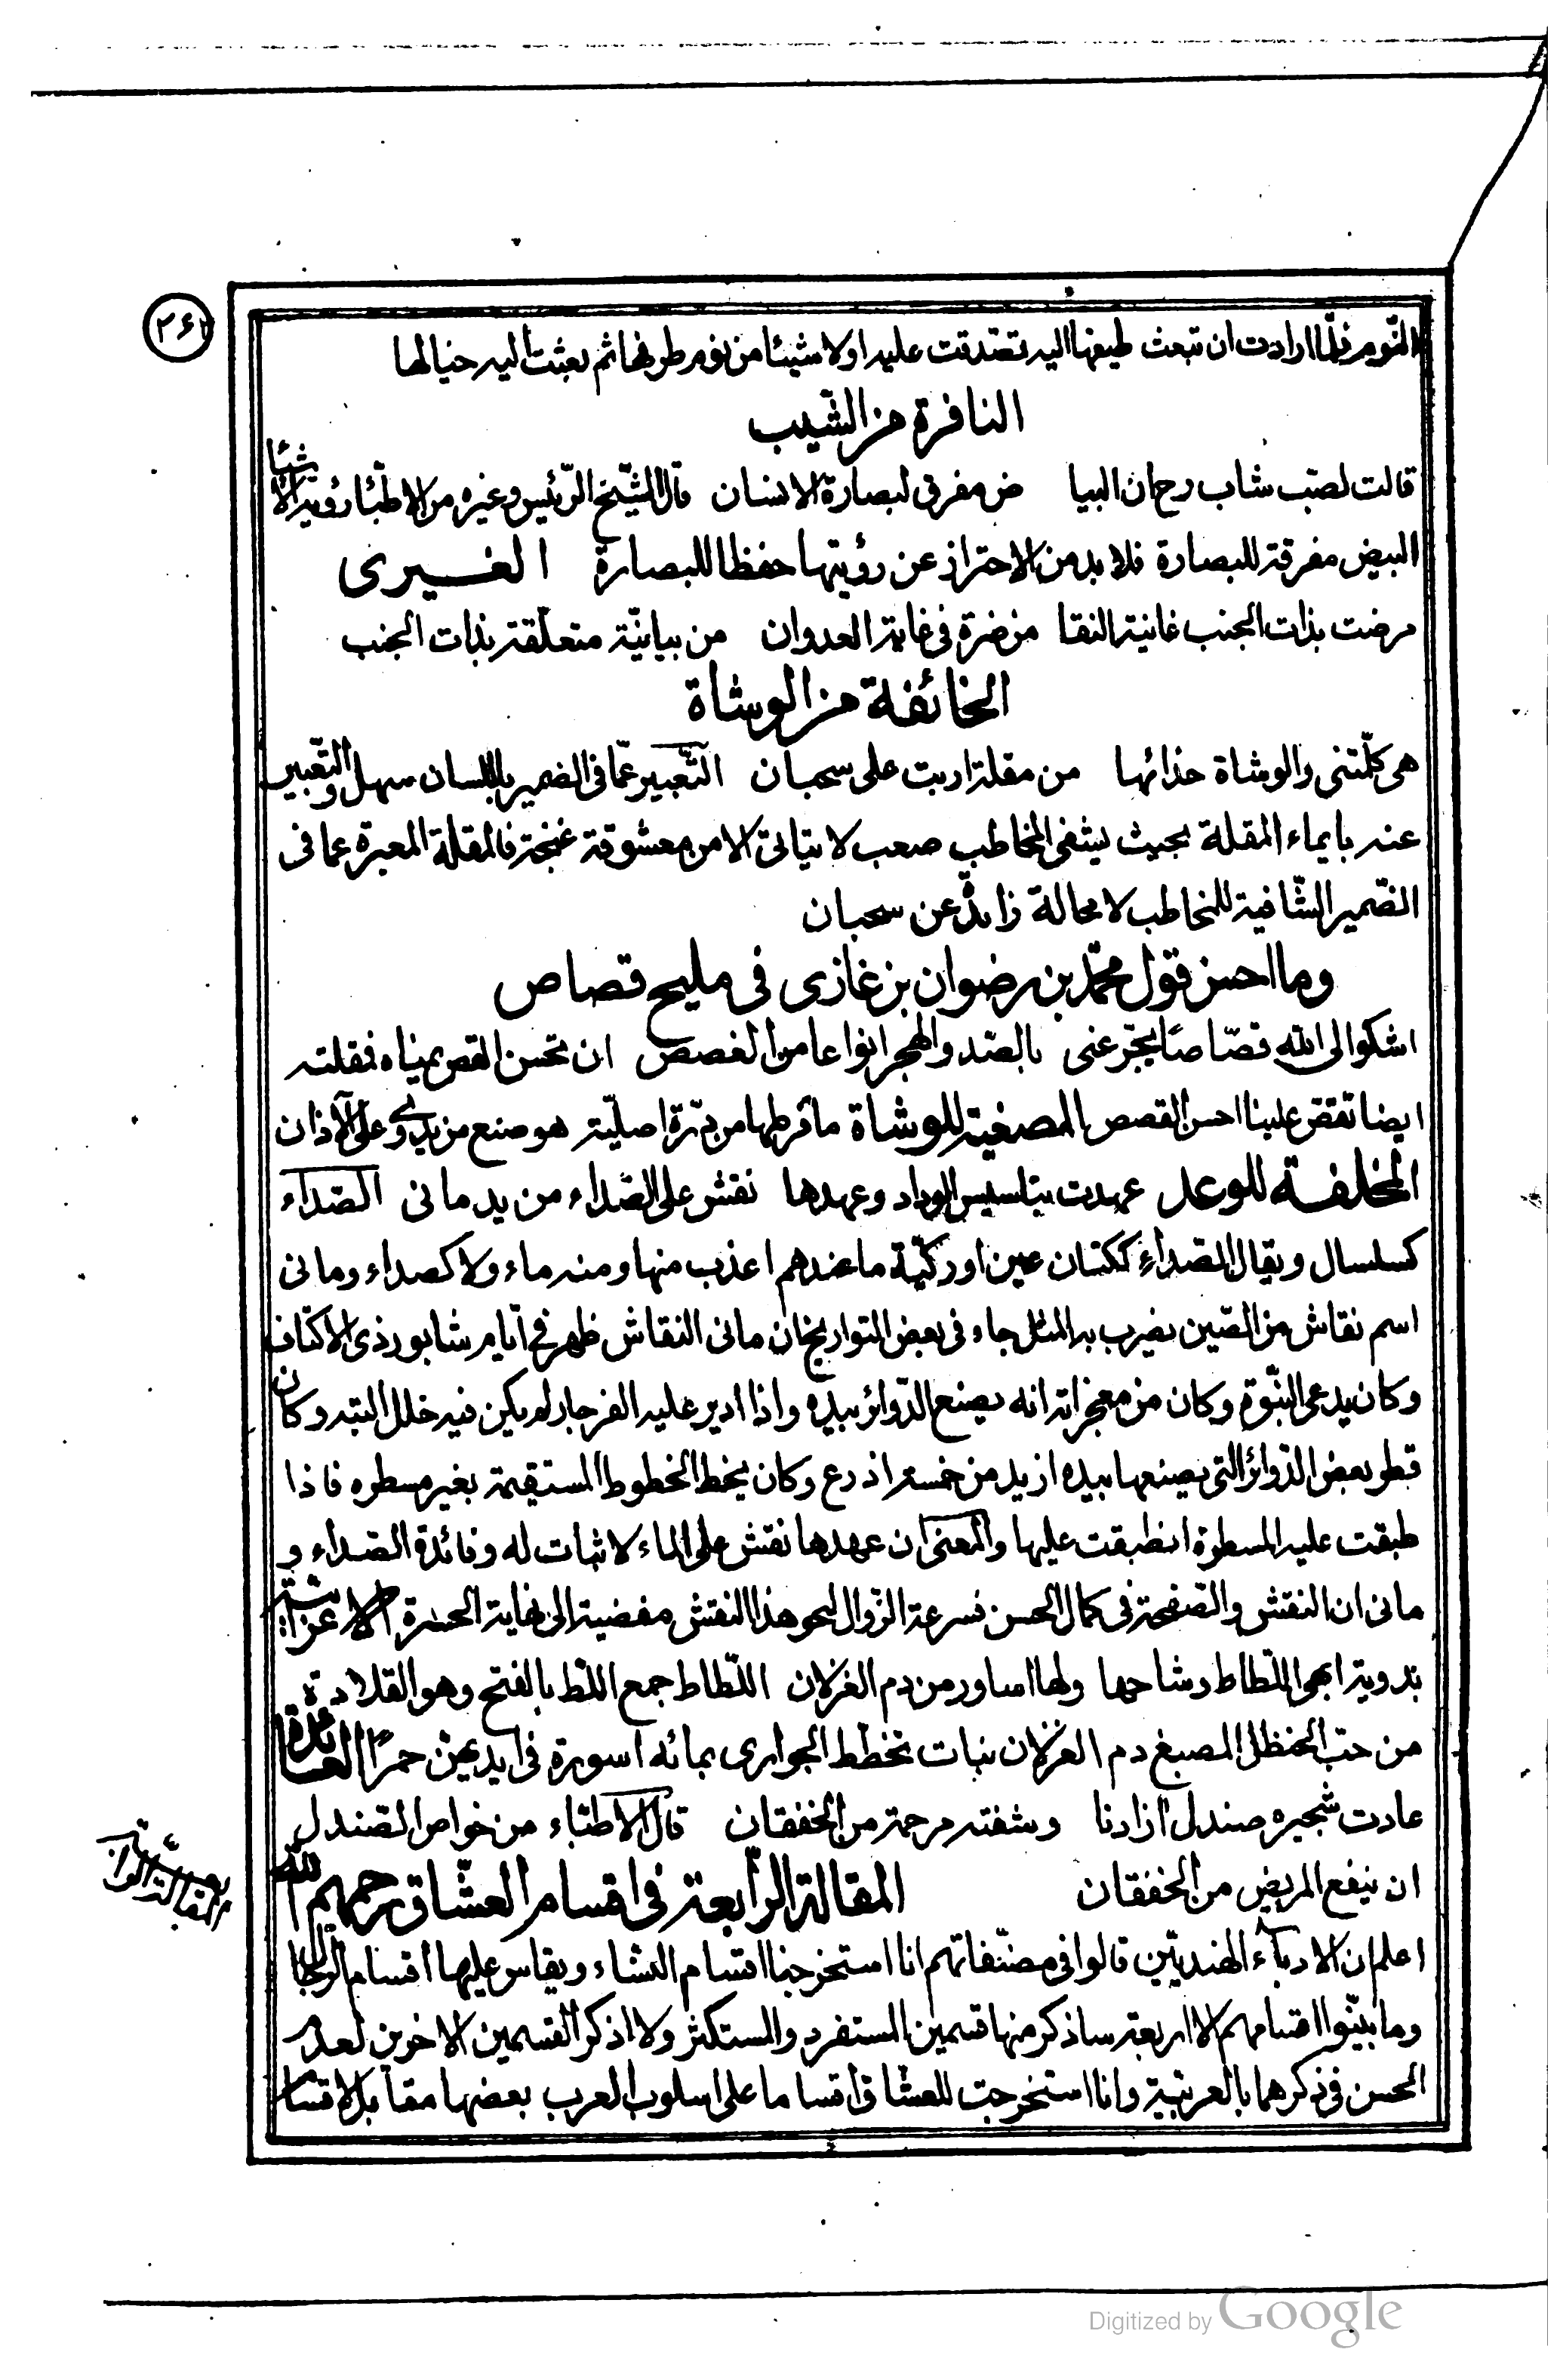 ٢٦٢
النّوم فلمّا ارادت ان تبعث طيفها اليه تصدقت عليه اولا شيئا من نوم طرفها ثم بعثت اليه خيالها
النافرة من الشيب
قالت لصب شاب رحمان البيا ض مفرق لبصارة الانسان قال الشيخ الرّئيس وغيره من الاطبّاء رؤية الاشياء
البيض مفرقة للبصارة فلا بد من الاحتراز عن رؤيتها حفظا للبصارة الغيرى
مرضت بذات الجنب غانية النقا من ضرة فى غاية العدوان من بيانيّة متعلّقة بذات الجنب
الخائفة من الوشاة
هى كلّمتنى والوشاة حذائها من مقلة اربت على سحبان التّعبير عمّا فى الضمير باللسان سهل والتّعبير
عنه بايماء المقلة بحيث يشفى المخاطب صعب لا يتاتى الا من معشوقة غنجة فالمقلة المعبرة عما فى
الضّمير الشّافية للمخاطب لا محالة زائدة عن سحبان
وما احسن قول محمّد بن رضوان بن غازى فى مليح قصاص
اشكوا الى الله قصّاصا يجّرعنى بالصّد والهجر انواعا من الغصص ان تحسن القص يمناه فمقلته
ايضا تقص علينا احسن القصص المصغية للوشاة ما قرطها من درّة اصليّة هو صنع من يدوى على الآذان
المخلفة للوعد عهدت بتاسيس الوداد وعهدها نقش على الصّداء من يد مانى الصّداء
كسلسال ويقال الصّداء ككتان عين او ركيّة ما عندهم اعذب منها ومنه ماء ولا كصداء ومانى
اسم نقاش من الصّين يضرب به المثل جاء فى بعض التواريخ ان مانى النقاش ظهر فى ايّام شابور ذى الاكتاف
وكان يدعى النبّوة وكان من معجزاته انه يصنع الدّوائر بيده واذا ادير عليه الفرجار لم يكن فيه خلل البتة وكان
قطر بعض الدّوائر التى يصنعها بيده ازيد من خمسة اذرع وكان يخط الخطوط المستقيمة بغير مسطره فاذا
طبقت عليه المسطرة انطبقت عليها والمعنى ان عهدها نقش على الماء لا ثبات له وفائدة الصّداء و
مانى ان النقش والصّفحة فى كمال الحسن فسرعة الزّوال لنحو هذا النقش مفضية الى نهاية الحسرة
بدوية ابهى اللّطاط وشاحها ولها اساور من دم الغزلان اللّطاط جمع اللّط بالفتح وهو القلادة
من حبّ الحنظل المصبغ دم الغزلان نبات تخطط الجوارى بمائه اسورة فى ايديهنّ حمرًا العائدة
عادت شجيره صندل ازادنا وشفته مرحمة من الخفقان قال الاطبّاء من خواص الصّندل
ان ينفع المريض من الخفقان المقالة الرّابعة فى اقسام العشّاق رحمهم الله
اعلم ان الادباء الهنديّين قالوا فى مصنّفاتهم انا استخرجنا اقسام النساء ويقاس عليها اقسام الرجال
وما بيّنوا اقسامهم الا اربعة ساذكر منها قسمين المستفرد والمستكثر ولا اذكر القسمين الاخرين لعدم
الحسن فى ذكرهما بالعربيّة وانا استخرجت للعشاق اقساما على اسلوب العرب بعضها مقابل لاقسام
Digitized by Google